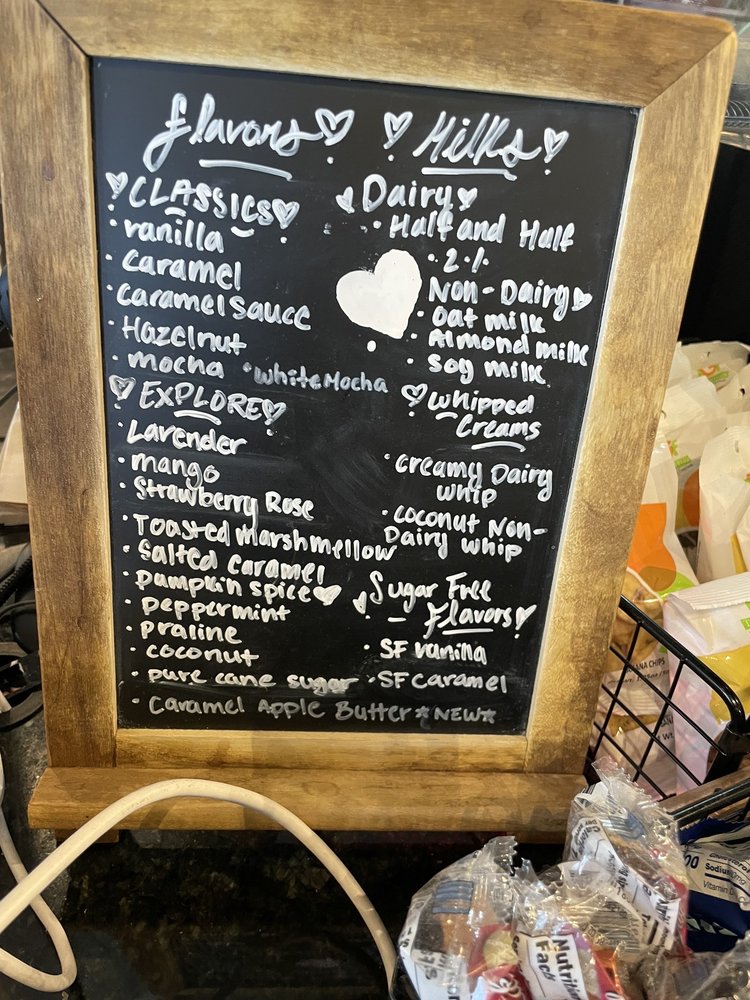 Flavors
CLASSICS
· vanilla
· caramel
· caramel sauce
· Hazelnut
· mocha · White Mocha
EXPLORE
· Lavender
· mango
· Strawberry Rose
· Toasted marshmellow
· Salted caramel
· pumpkin spice
· peppermint
· praline
· coconut
· pure cane sugar
· Caramel Apple Butter ☆NEW☆
Milks
Dairy
· Half and Half
· 2%
Non-Dairy
· Oat milk
· Almond milk
· Soy milk
Whipped
Creams
· creamy Dairy
whip
· coconut Non-
Dairy whip
Sugar Free
- Flavors
· SF vanilla
· SF caramel
Nutrition